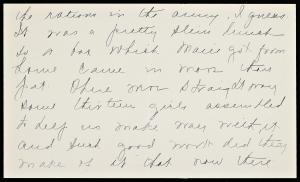 the rations in the army, I guess.
It was a pretty slim lunch
so a box which Marie got from
home came in more than
pat. Ohne mor straight way
some thirteen girls assembled
to help us make way with it
and such good work did they
make of it that now there